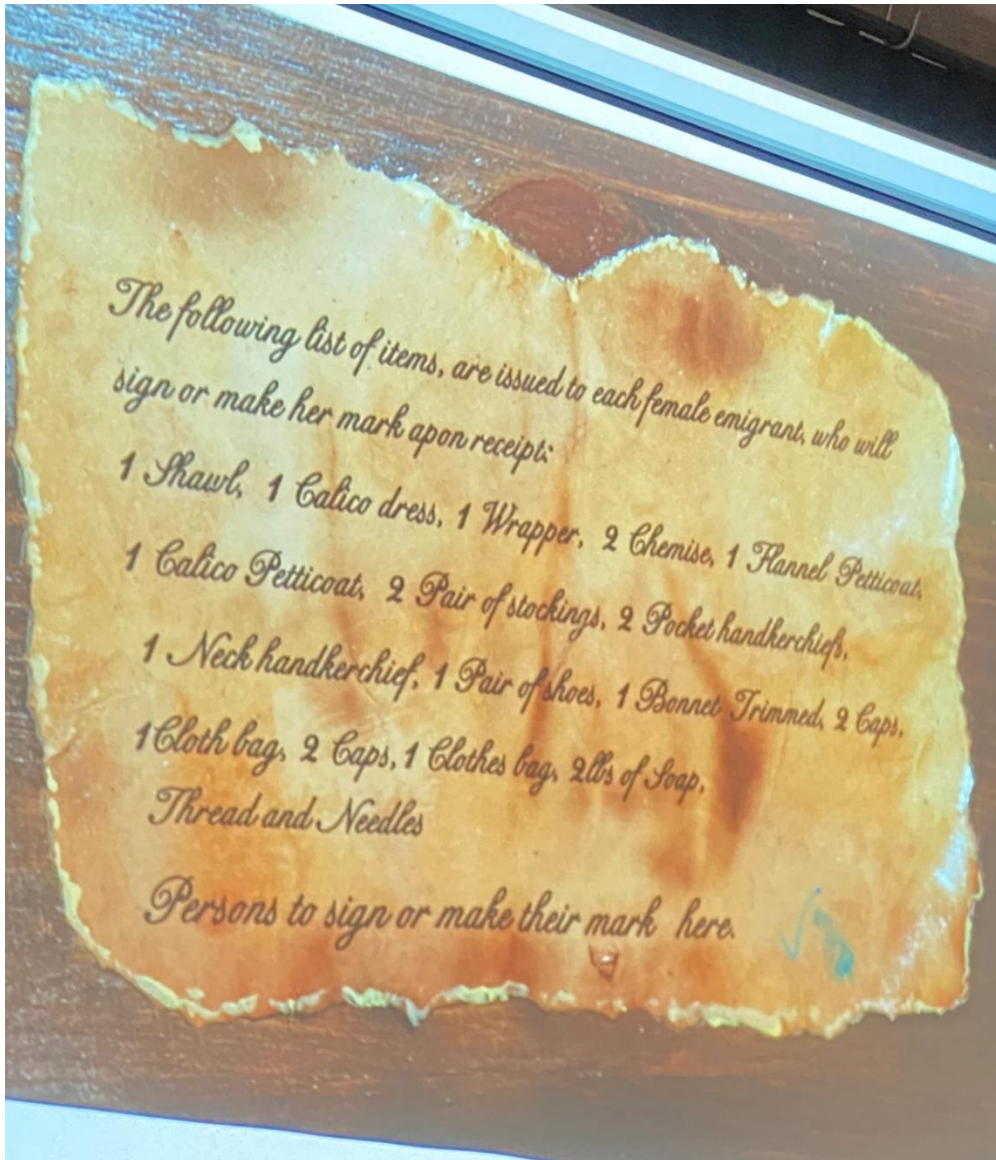 The following list of items, are issued to each female emigrant, who will
sign or make her mark apon receipt:
1 Shawl, 1 Calico dress, 1 Wrapper, 2 Chemise, 1 Flannel Petticoat,
1 Calico Petticoat, 2 Pair of stockings, 2 Pocket handkerchiefs,
1 Neck handkerchief, 1 Pair of shoes, 1 Bonnet Trimmed, 2 Caps,
1 Cloth bag, 2 Caps, 1 Clothes bag, 2lbs of Soap,
Thread and Needles
Persons to sign or make their mark here.